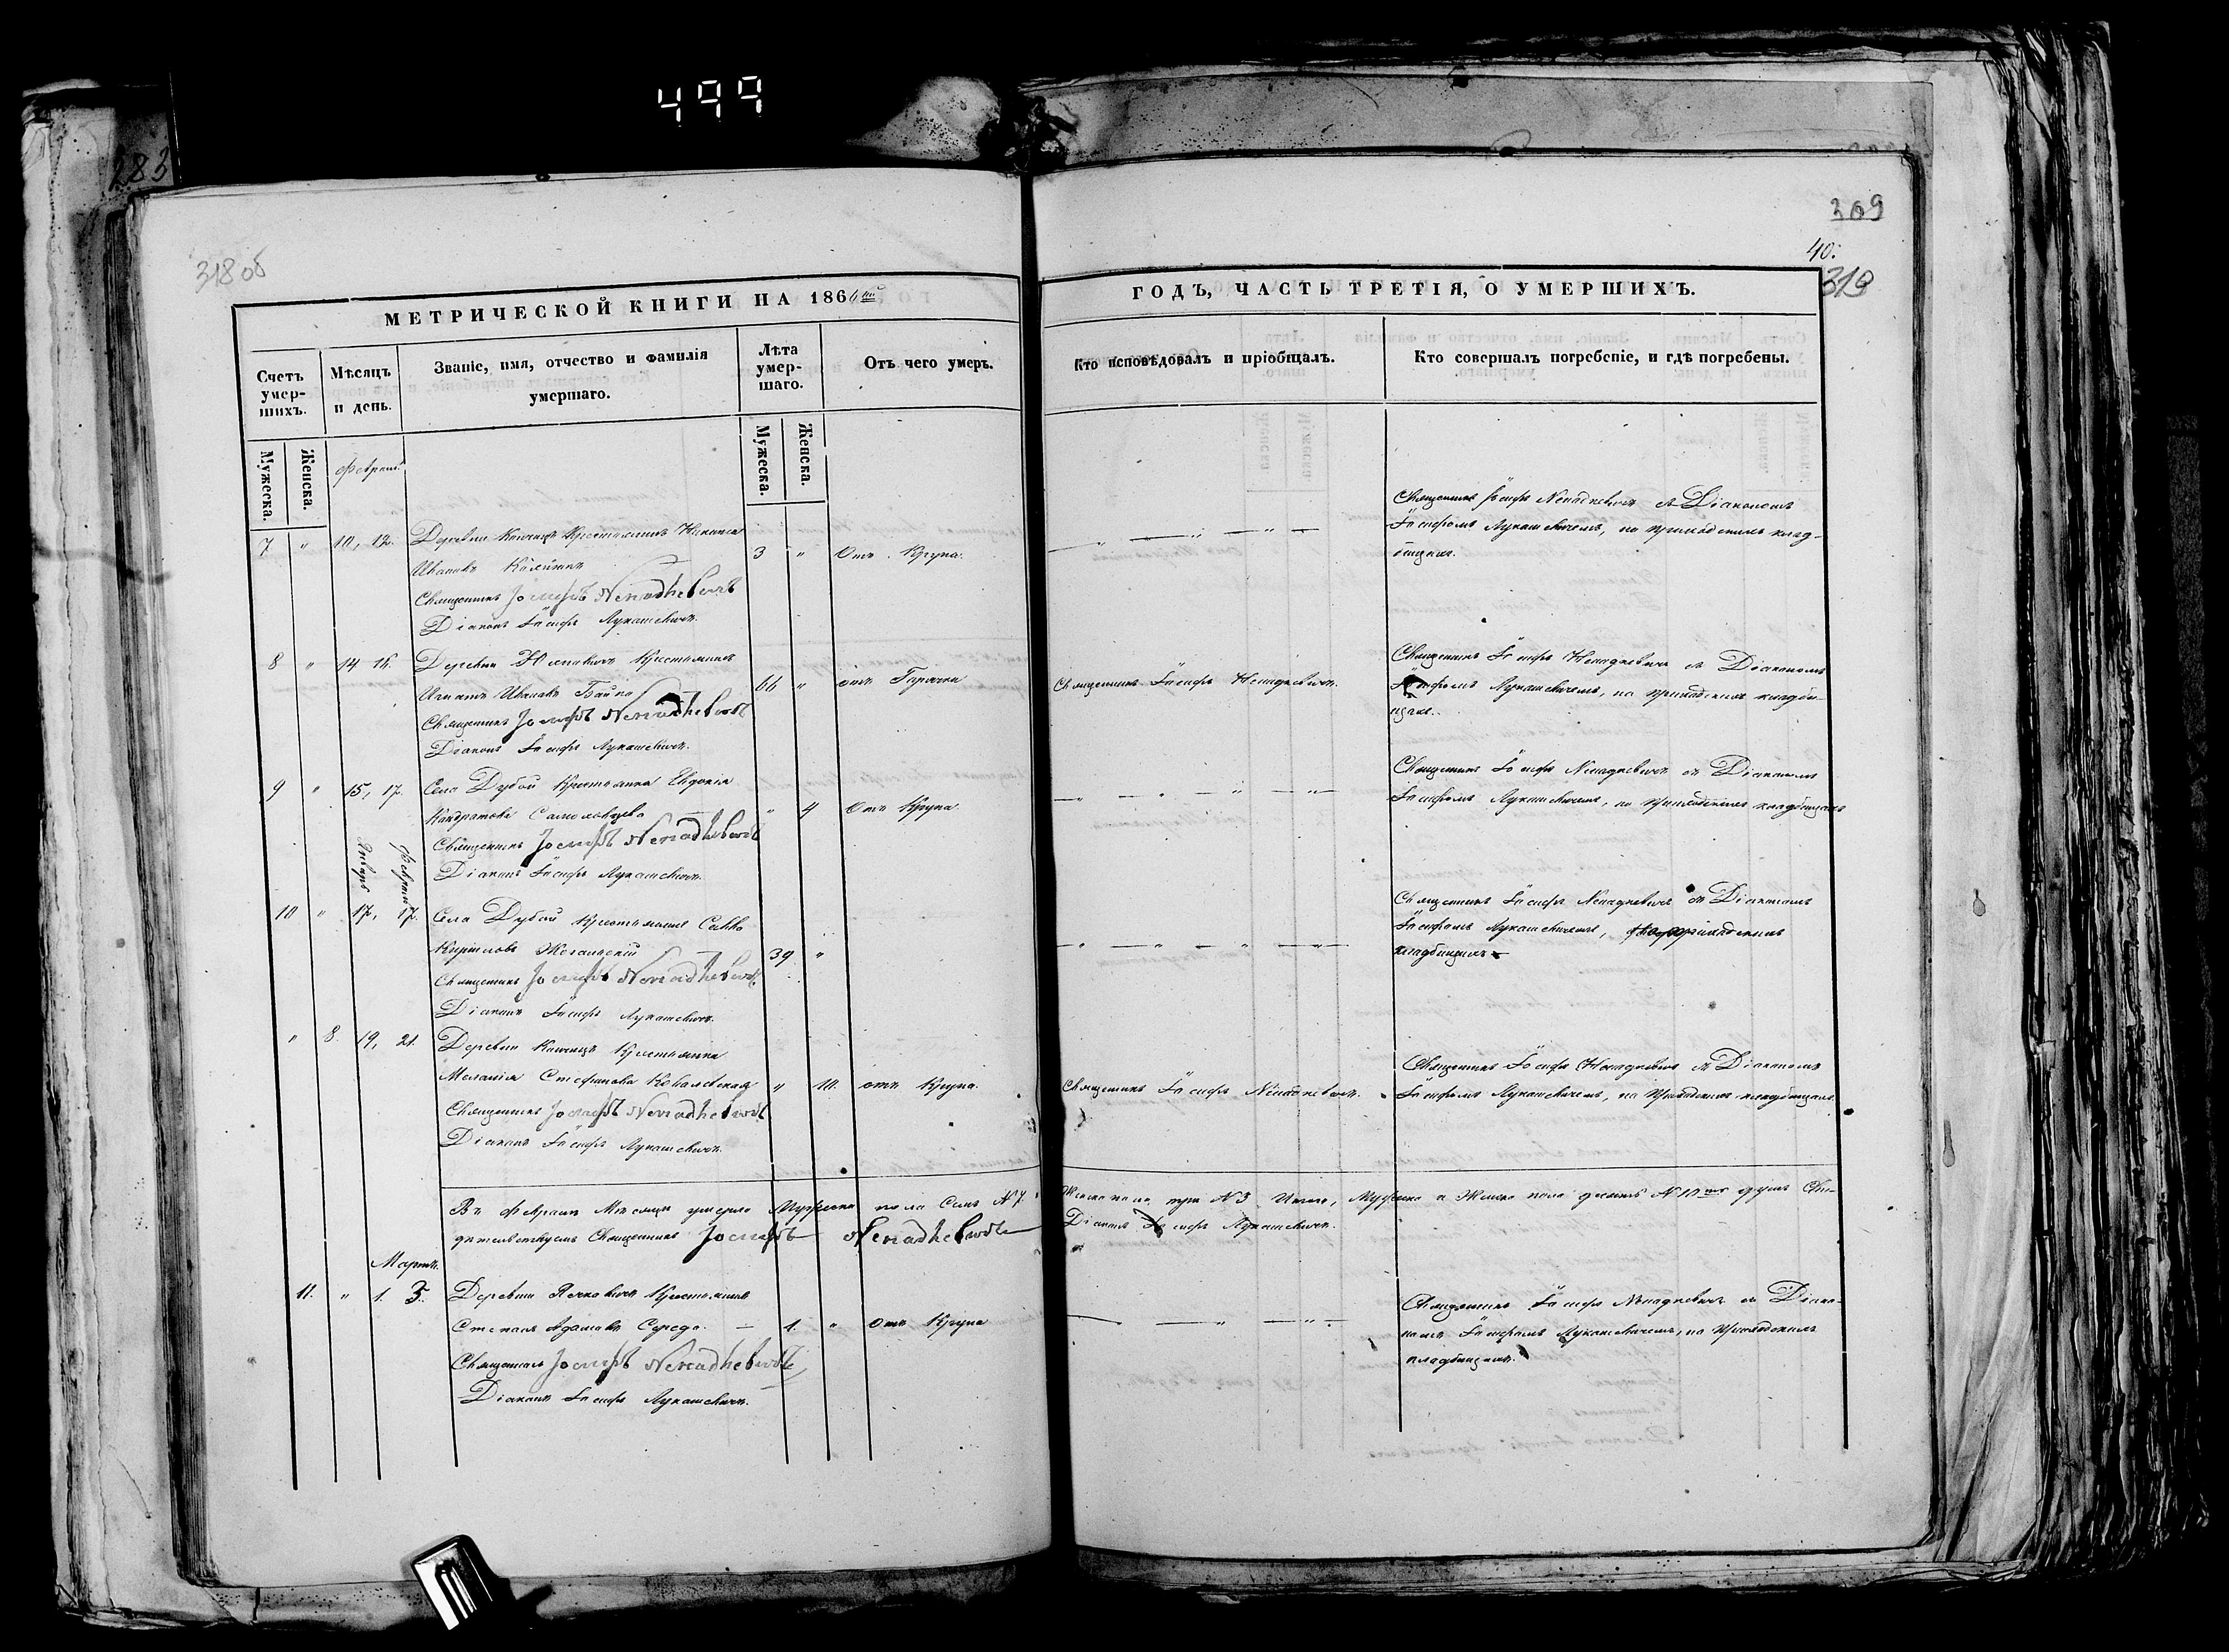 499
283
318 об
309
40.
319
МЕТРИЧЕСКОЙ КНИГИ НА 1866
ГОДЪ, ЧАСТЬ ТРЕТІЯ, О УМЕРШИХЪ.
Счетъ умер-шихъ.
Мѣсяцъ и день.
Званіе, имя, отчество и фамилія умершаго.
Лѣта умер-шаго.
Отъ чего умеръ.
Кто исповѣдовалъ и пріобщалъ.
Кто совершалъ погребеніе, и гдѣ погребены.
Мужеска.
Женска.
Мужеска.
Женска.
7 " 10, 12. Деревни Крестьянинъ
Ивановъ 3 " Отъ Крупа.
Священникъ Іосифъ Ненадкевичъ
Діаконъ Іосифъ Лукашевичъ.
Священникъ Іосифъ Ненадкевичъ съ Діакономъ
Іосифомъ Лукашевичемъ, на приходскихъ клад-
бищахъ.
8 " 14 16. Деревни Крестьянинъ
Игнатъ Ивановъ 66 " отъ Горячки
Священникъ Іосифъ Ненадкевичъ
Діаконъ Іосифъ Лукашевичъ.
Священникъ Іосифъ Ненадкевичъ.
Священникъ Іосифъ Ненадкевичъ съ Діакономъ
Іосифомъ Лукашевичемъ, на приходскихъ кладби-
щахъ.
9 " 15, 17. Села Дубой Крестьянка Евдокія
Кондратова " 4 Отъ Крупа
Священникъ Іосифъ Ненадкевичъ
Діаконъ Іосифъ Лукашевичъ.
Священникъ Іосифъ Ненадкевичъ съ Діакономъ
Іосифомъ Лукашевичемъ, на приходскихъ кладбищахъ
Январь Февраль
10 " 17, 17. Села Дубой крестьянинъ Савва
Кирилловъ 39 "
Священникъ Іосифъ Ненадкевичъ
Діаконъ Іосифъ Лукашевичъ.
Священникъ Іосифъ Ненадкевичъ съ Діакономъ
Іосифомъ Лукашевичемъ, на приходскихъ
кладбищахъ
" 8. 19, 21. Деревни Крестьянка
Меланія Стефанова Ковалевская " 10. отъ Крупа.
Священникъ Іосифъ Ненадкевичъ
Діаконъ Іосифъ Лукашевичъ.
Священникъ Іосифъ Ненадкевичъ.
Священникъ Іосифъ Ненадкевичъ съ Діакономъ
Іосифомъ Лукашевичемъ, на приходскихъ кладбищахъ.
Въ Февралѣ Мѣсяцѣ умерло Мужеска пола Семь №7. Женска пола три №3 Итого, Мужеска и Женска пола десять №10
Священникъ Іосифъ Ненадкевичъ Діаконъ Іосифъ Лукашевичъ.
Мартъ.
11. " 1. 3. Деревни Крестьянинъ
Степанъ Адамовъ Середа. 1. " Отъ Крупа
Священникъ Іосифъ Ненадкевичъ
Діаконъ Іосифъ Лукашевичъ.
Священникъ Іосифъ Ненадкевичъ съ Діако-
номъ Іосифомъ Лукашевичемъ, на Приходскихъ
кладбищахъ.